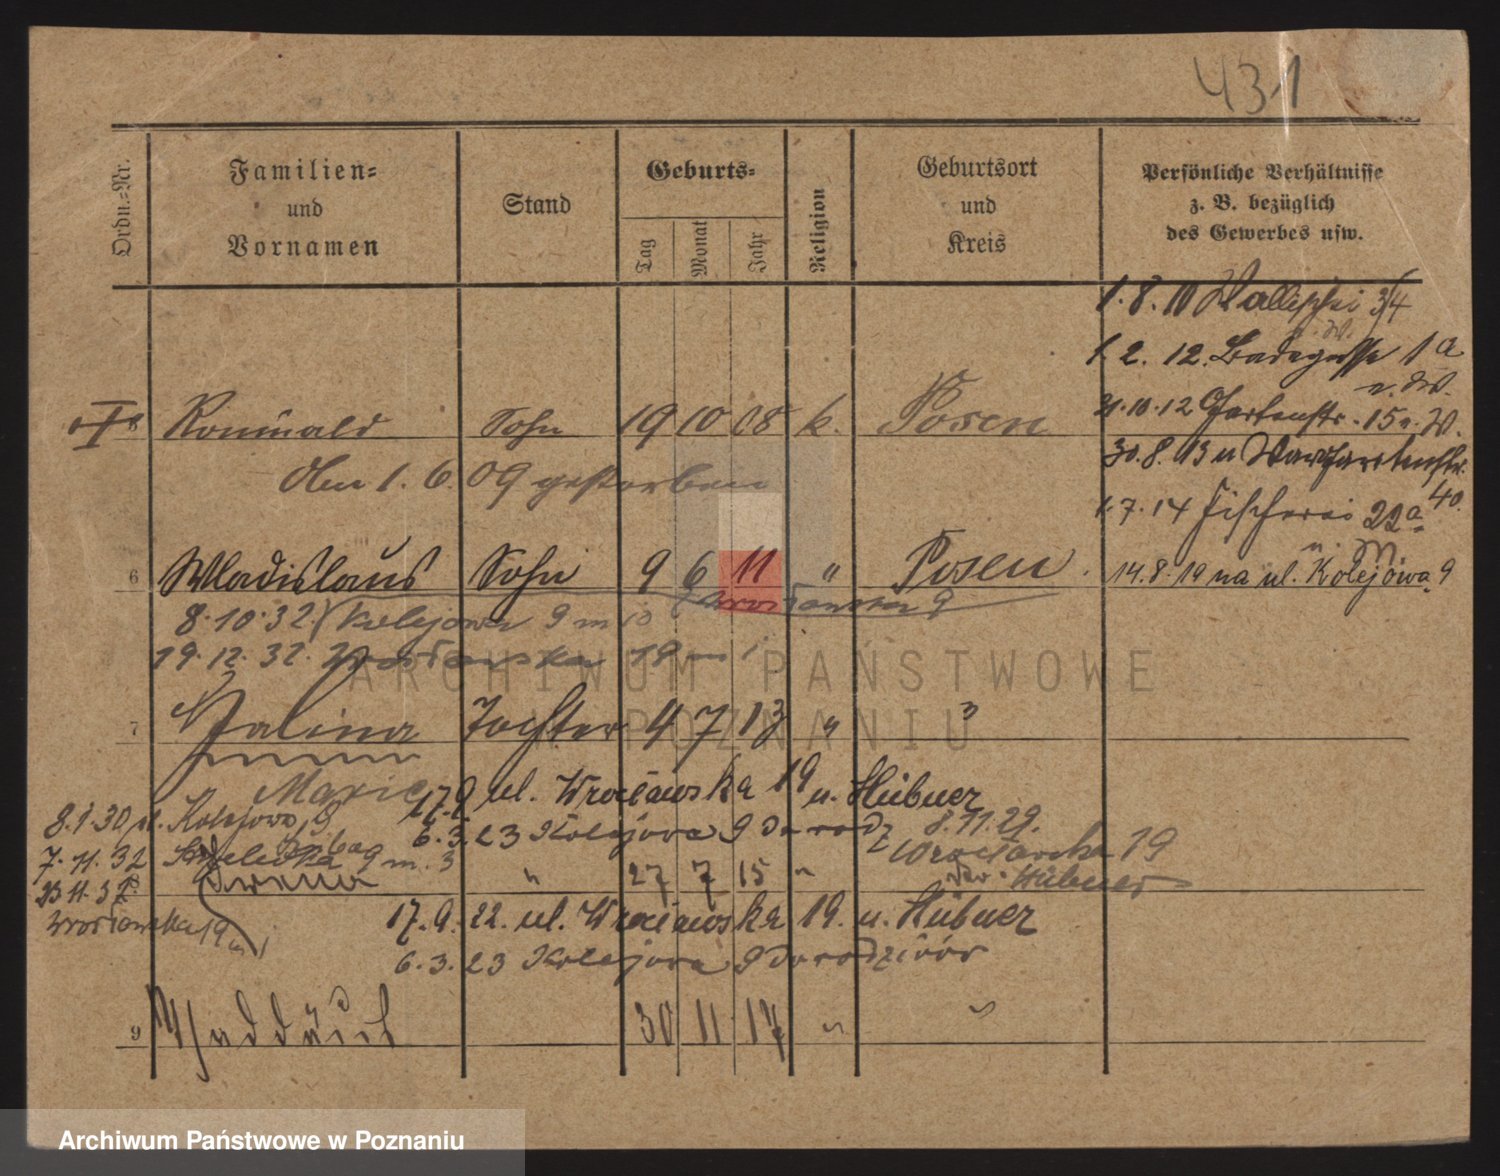 431
Ordn.-Nr.
Familien-
und
Vornamen
Stand
Geburts-
Tag
Monat
Jahr
Religion
Geburtsort
und
Kreis
Persönliche Verhältnisse
z. B. bezüglich
des Gewerbes usw.
1. 8. 10 Wallischei 3/4
1. 2. 12. Badegasse 1a
31. 10. 12 Gartenstr. 15
Romuald Sohn 19 10 08 k. Posen
30. 8. 13
den 1. 6. 09 gestorben
40.
1. 7. 14 Fischerei 22a
6 Wladislaus Sohn 9 6 11 " Posen
14. 8. 19 na ul. Kolejowa 9
Wrocławska 9
8. 10. 32 Kolejowa 9 m 10
19. 12. 32. Wrocławska 19 m 1
ARCHIWUM PAŃSTWOWE
W POZNANIU
7 Halina Tochter 4 7 13 " "
Marie
17. 9. ul. Wrocławska 19 u. Hübner
8. 1. 30 ul. Kolejowa 9
6. 3. 23 Kolejowa 9
8. 11. 29.
Wrocławska 19
Hübner
7. 11. 32 9 m. 3
Irena " 27 7 15 "
Wrocławska 19 m 1
17. 9. 22. ul. Wrocławska 19. u. Hübner
6. 3. 23 Kolejowa 9 do rodziców
9 Thaddäus 30 11 17 " "
Archiwum Państwowe w Poznaniu